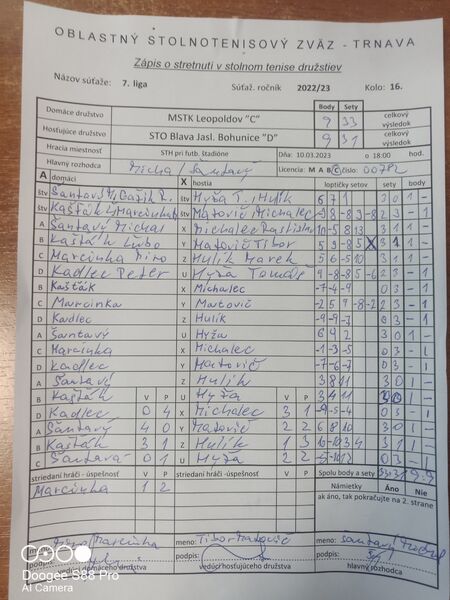 OBLASTNÝ STOLNOTENISOVÝ ZVÄZ - TRNAVA
Zápis o stretnutí v stolnom tenise družstiev
Názov súťaže: 7. liga Súťaž. ročník 2022/23 Kolo: 16.
Body Sety
Domáce družstvo MSTK Leopoldov "C" 9 33 celkový výsledok
Hosťujúce družstvo STO Blava Jasl. Bohunice "D" 9 31 celkový výsledok
Hracia miestnosť STH pri futb. štadióne Dňa: 10.03.2023 o 18:00 hod.
Hlavný rozhodca Michal Šantavý Licencia: M A B C číslo: 00782
A domáci X hostia loptičky setov sety body
štv Šantavý M., R. štv Hyža T., Hulík 6 7 1 3 0 1 -
štv Kašťák L., Marcinka štv Matovič, Michalec 2 3 - 1
A Šantavý Michal X Michalec Rastislav
B Kašťák Ľubo Y Matovič Tibor 3 1 1 -
C Marcinka Miro Z Hulík Marek
D Kadlec Peter U Hyža Tomáš -9 -8 -8 5 -6 2 3 - 1
B Kašťák X Michalec -7 -4 -9 0 3 - 1
C Marcinka Y Matovič 2 3 - 1
D Kadlec Z Hulík -9 -9 -7 0 3 - 1
A Šantavý U Hyža 6 4 2 3 0 1 -
C Marcinka X Michalec -1 -3 -5 0 3 - 1
D Kadlec Y Matovič -7 -6 -7 0 3 - 1
A Šantavý Z Hulík 3 8 11 3 0 1 -
B Kašťák V P U Hyža V P 3 4 11 3 0 1 -
D Kadlec 0 4 X Michalec 3 1 -9 -5 -4 0 3 - 1
A Šantavý 4 0 Y Matovič 2 2 6 8 10 3 0 1 -
B Kašťák 3 1 Z Hulík 1 3 3 1 1 -
C Šantavá 0 1 U Hyža 2 2 0 3 - 1
striedaní hráči -úspešnosť V P striedaní hráči -úspešnosť V P Spolu body a sety 33:31 9:9
Marcinka 1 2 Námietky Áno Nie
ak áno, tak pokračujte na 2. strane
Marcinka meno: Tibor Matovič meno: Šantavý Michal
podpis: podpis: podpis:
vedúci domáceho družstva vedúci hosťujúceho družstva hlavný rozhodca
Doogee S88 Pro
AI Camera